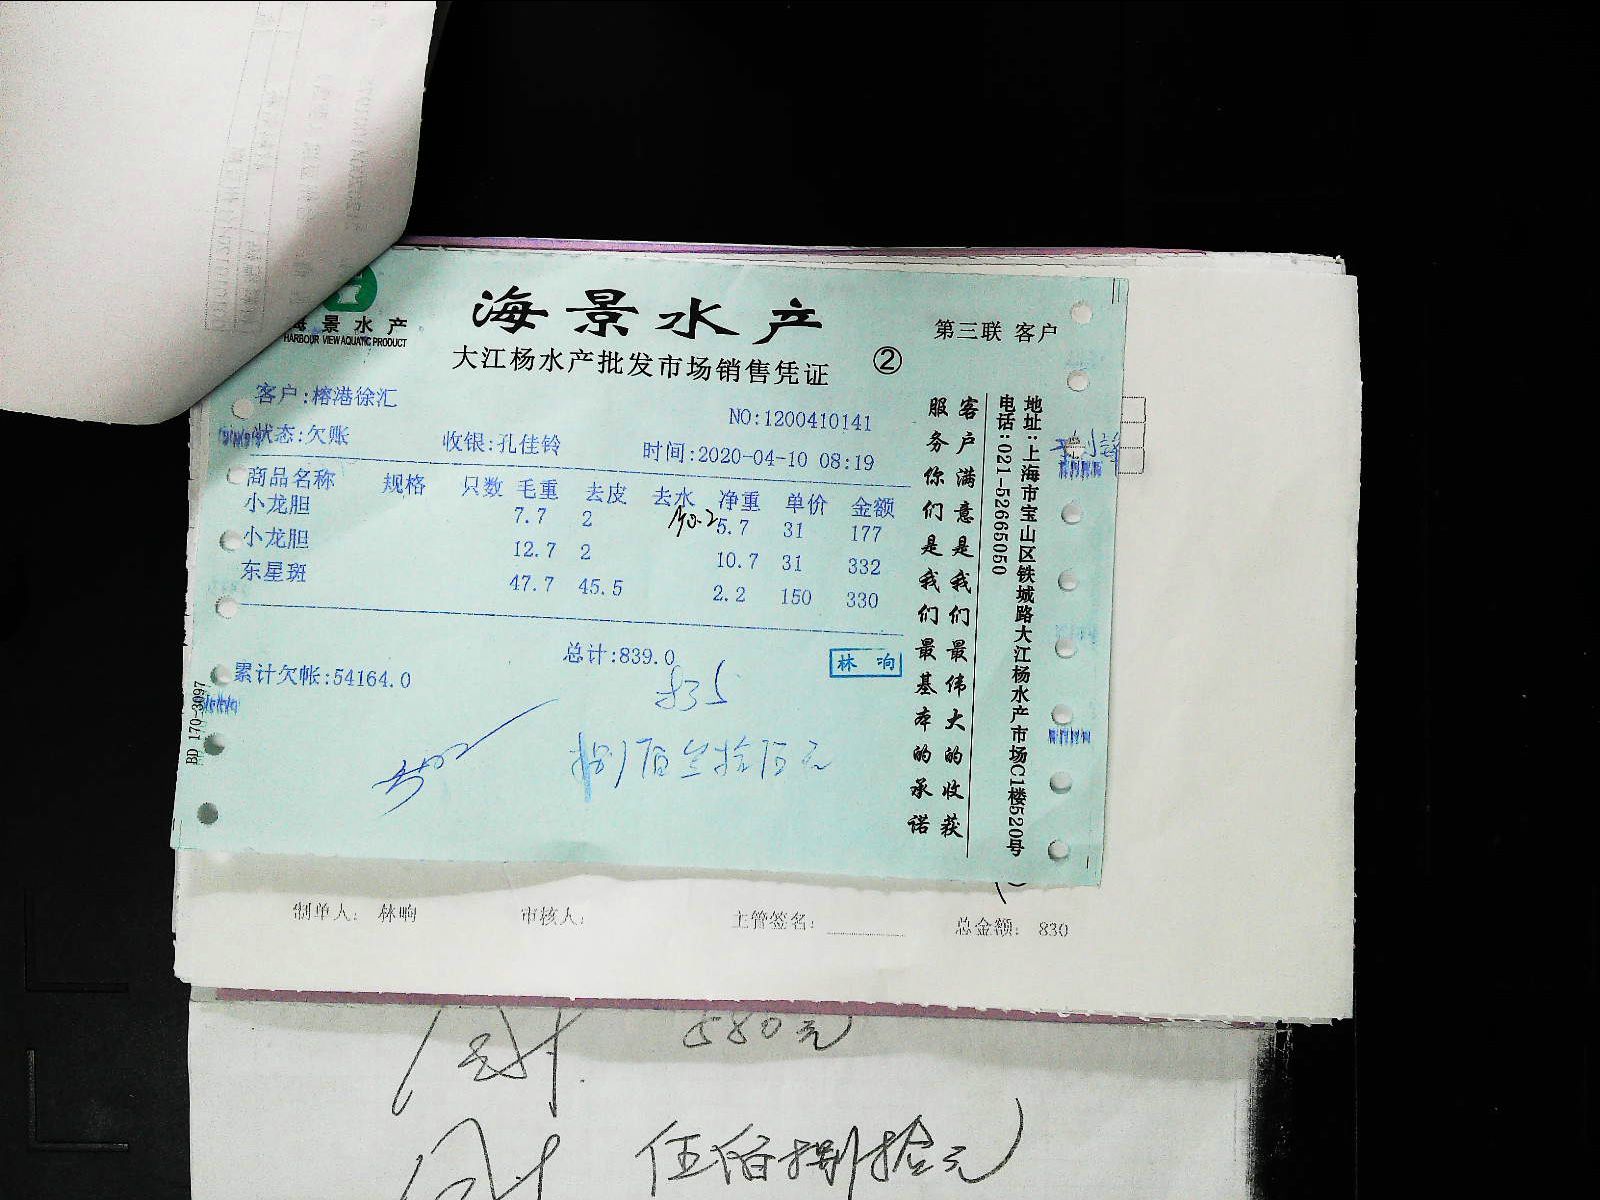 海景水产
HARBOUR VIEW AQUATIC PRODUCT
海景水产
大江杨水产批发市场销售凭证
②
第三联 客户
客户:榕港徐汇
NO:1200410141
状态:欠账 收银:孔佳铃 时间:2020-04-10 08:19
商品名称 规格 只数 毛重 去皮 去水 净重 单价 金额
小龙胆 7.7 2 5.7 31 177
小龙胆 12.7 2 10.7 31 332
东星斑 47.7 45.5 2.2 150 330
总计:839.0
林响
累计欠帐:54164.0
835
捌佰叁拾伍元
BD 170-3097
客户满意是我们最伟大的收获
服务你们是我们最基本的承诺
地址:上海市宝山区铁城路大江杨水产市场C1楼520号
电话:021-52665050
制单人: 林响 审核人: 主管签名: 总金额: 830
580元
伍佰捌拾元